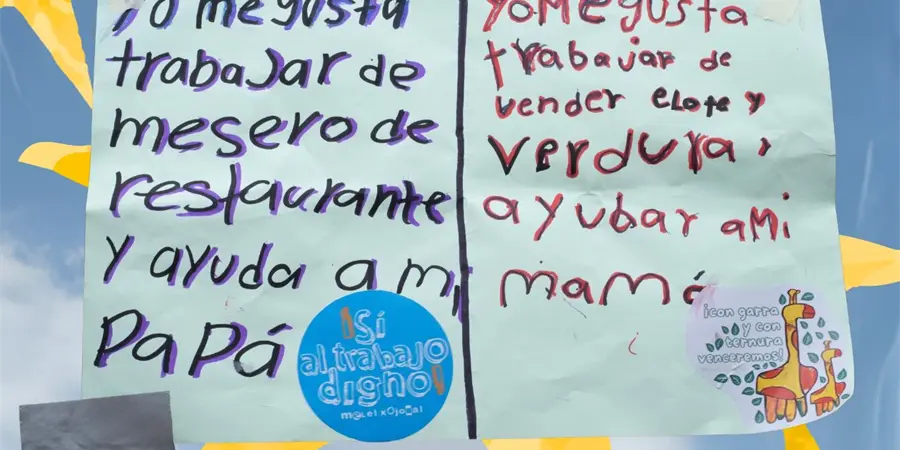 yo me gusta
trabajar de
mesero de
restaurante
y ayuda a mi
papá
¡Sí
al trabajo
digno!
yo me gusta
trabajar de
vender elote y
verdura,
ayubar a mi
mamá
¡con garra
y con
ternura
venceremos!